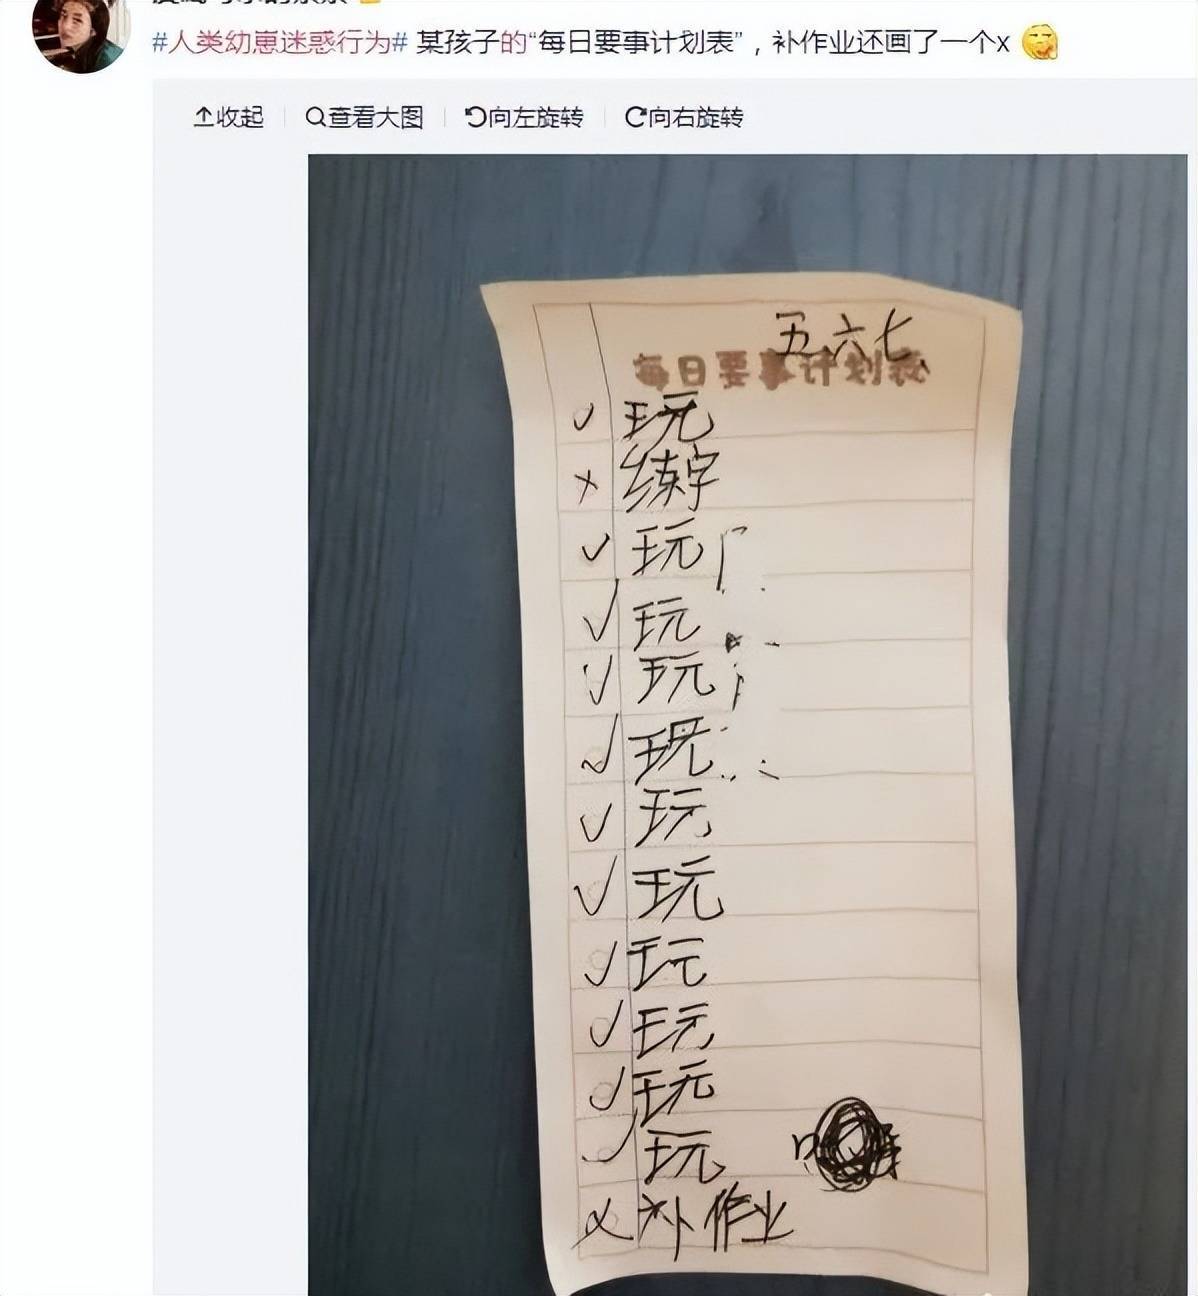 #人类幼崽迷惑行为# 某孩子的“每日要事计划表”，补作业还画了一个x
收起 查看大图 向左旋转 向右旋转
五.六七.
每日要事计划表
✓ 玩
× 练字
✓ 玩
✓ 玩
✓ 玩
✓ 玩
✓ 玩
✓ 玩
✓ 玩
✓ 玩
✓ 玩
✓ 玩
× 补作业